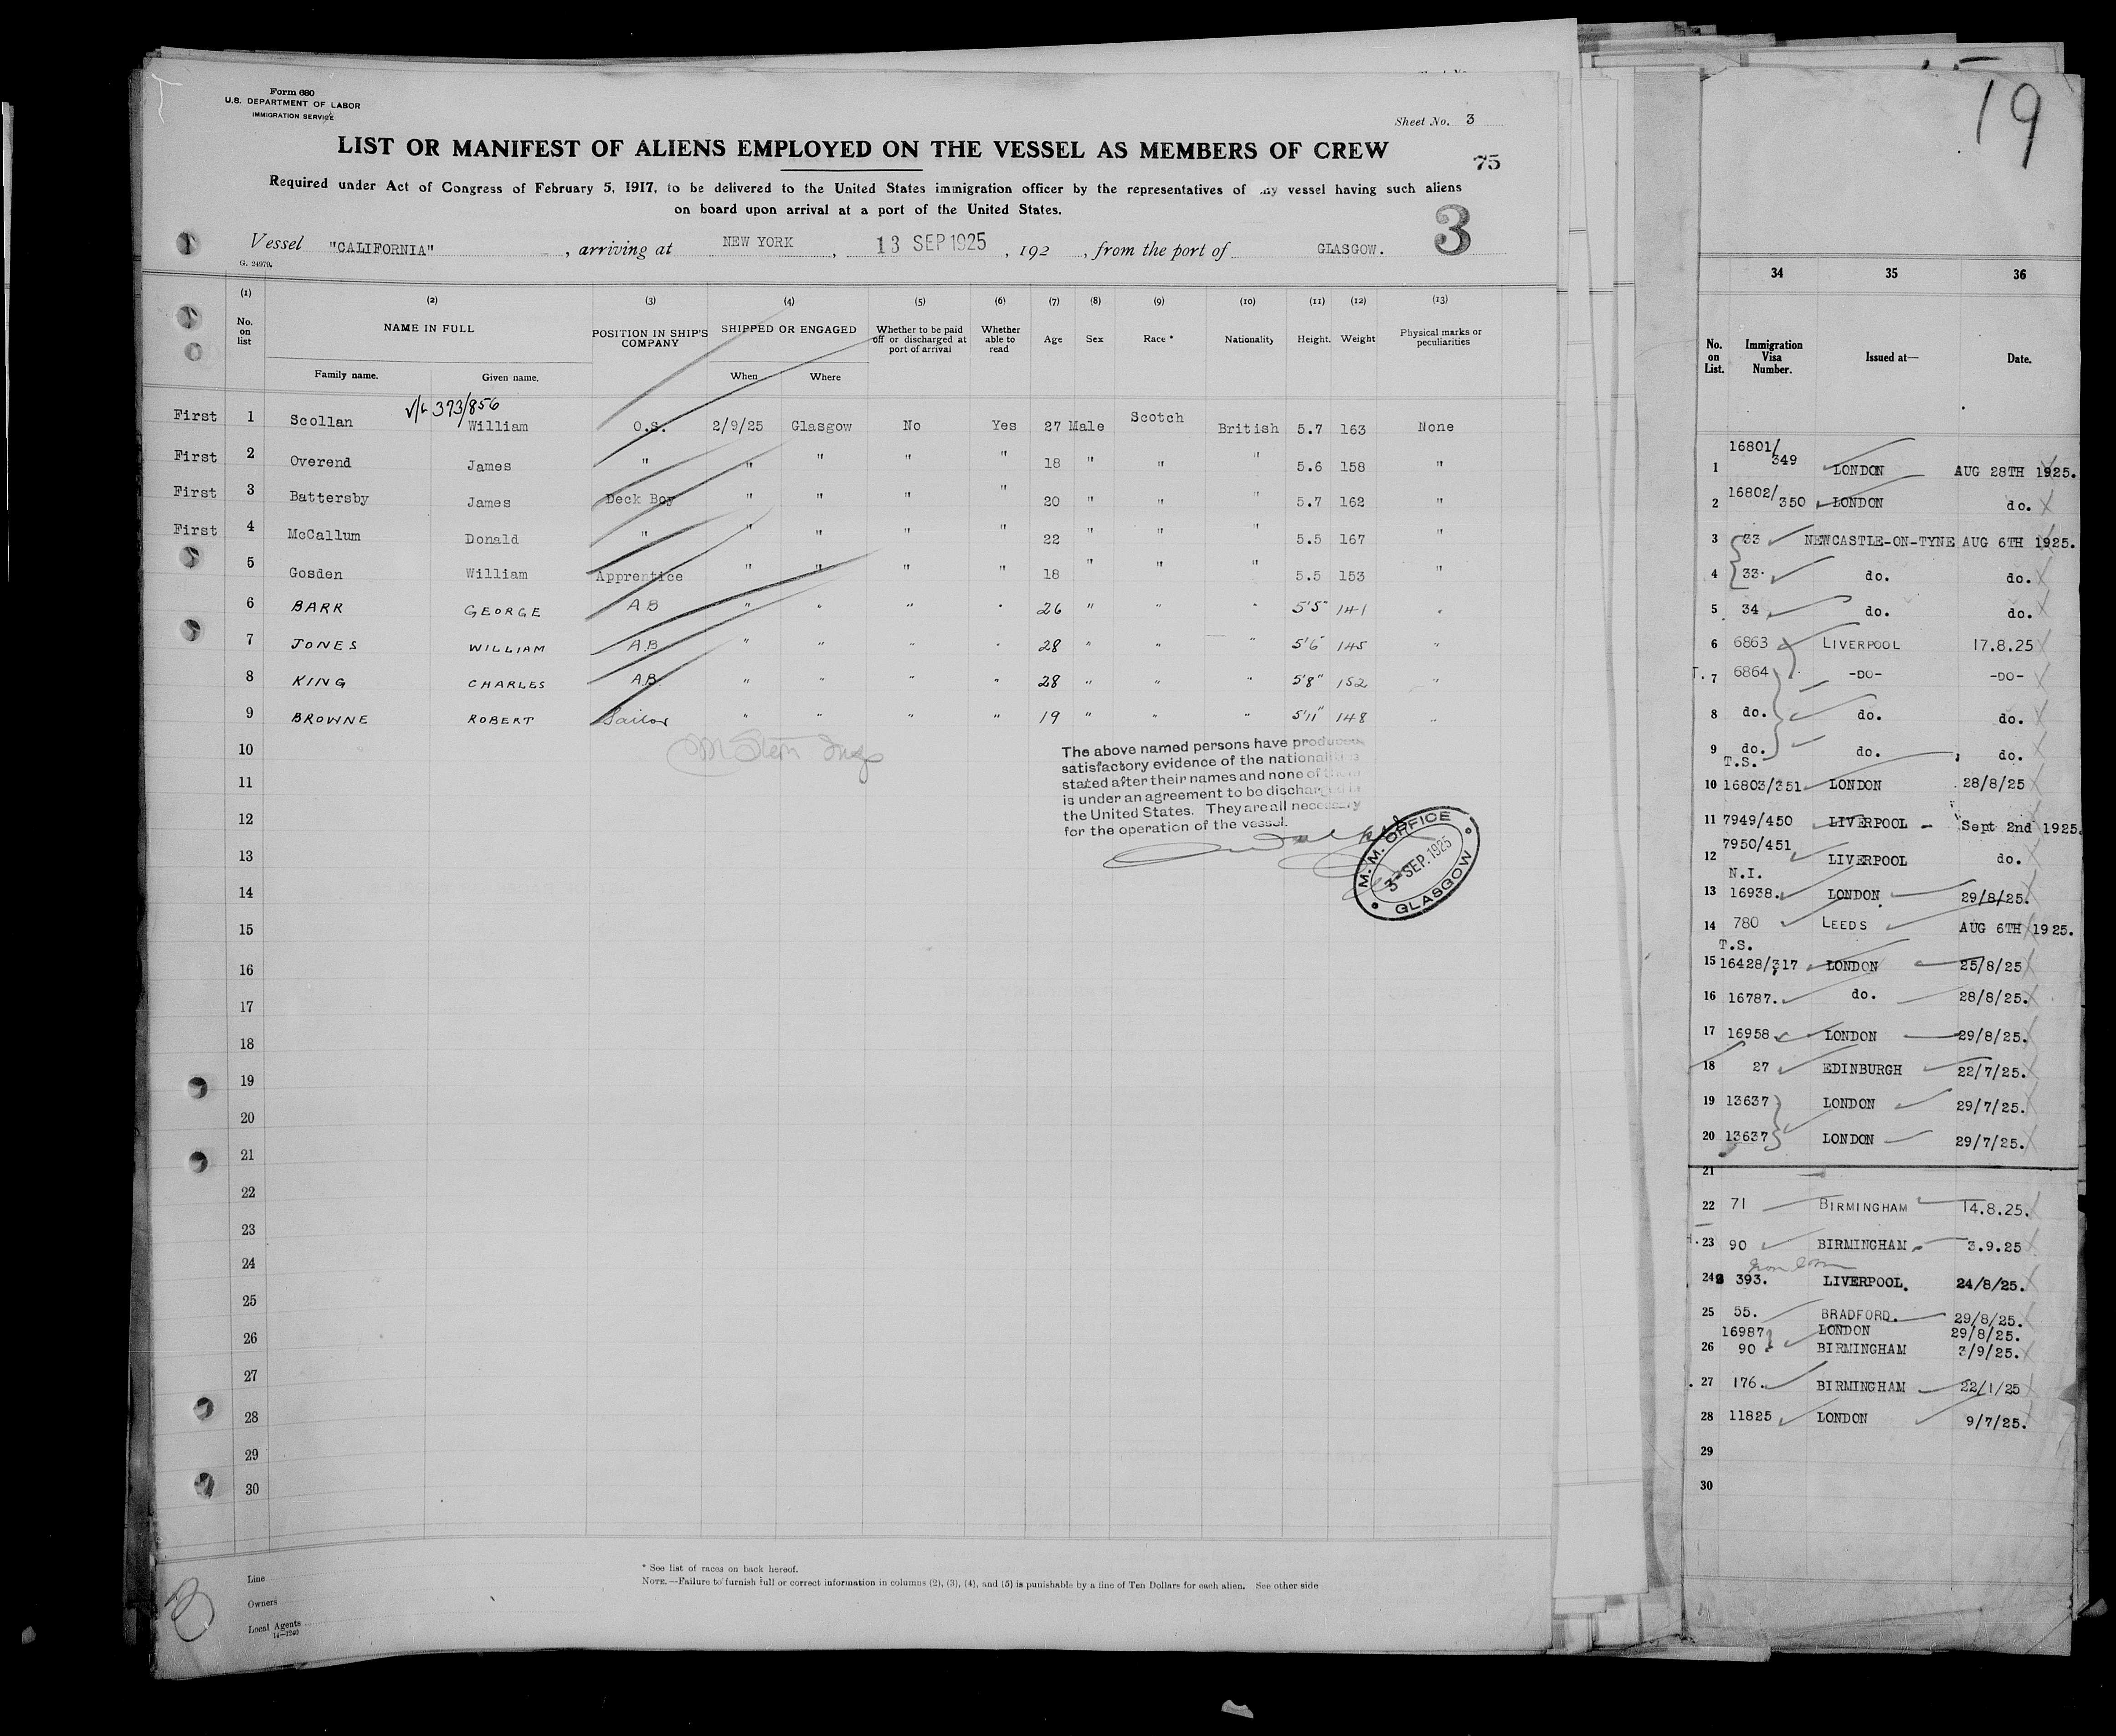 Form 680
U.S. DEPARTMENT OF LABOR
IMMIGRATION SERVICE
Sheet No. 3
LIST OR MANIFEST OF ALIENS EMPLOYED ON THE VESSEL AS MEMBERS OF CREW
75
Required under Act of Congress of February 5, 1917, to be delivered to the United States immigration officer by the representatives of any vessel having such aliens
on board upon arrival at a port of the United States.
3
Vessel "CALIFORNIA", arriving at NEW YORK, 13 SEP 1925, 192 , from the port of GLASGOW.
G. 24979.
(1) (2) (3) (4) (5) (6) (7) (8) (9) (10) (11) (12) (13)
No. on list NAME IN FULL POSITION IN SHIP'S COMPANY SHIPPED OR ENGAGED Whether to be paid off or discharged at port of arrival Whether able to read Age Sex Race * Nationality Height. Weight Physical marks or peculiarities
Family name. Given name. When Where
v/L 373/856
First 1 Scollan William O.S. 2/9/25 Glasgow No Yes 27 Male Scotch British 5.7 163 None
First 2 Overend James " " " " " 18 " " " 5.6 158 "
First 3 Battersby James Deck Boy " " " " 20 " " " 5.7 162 "
First 4 McCallum Donald " " " " " 22 " " " 5.5 167 "
5 Gosden William Apprentice " " " " 18 " " " 5.5 153 "
6 BARR GEORGE A B " " " " 26 " " " 5'5" 141 "
7 JONES WILLIAM A.B " " " " 28 " " " 5'6" 145 "
8 KING CHARLES A.B. " " " " 28 " " " 5'8" 152 "
9 BROWNE ROBERT Sailor " " " " 19 " " " 5'11" 148 "
10
11
12
13
14
15
16
17
18
19
20
21
22
23
24
25
26
27
28
29
30
The above named persons have produced
satisfactory evidence of the nationalities
stated after their names and none of them
is under an agreement to be discharged in
the United States. They are all necessary
for the operation of the vessel.
M. M. OFFICE
3-SEP.1925
GLASGOW
* See list of races on back hereof.
NOTE.—Failure to furnish full or correct information in columns (2), (3), (4), and (5) is punishable by a fine of Ten Dollars for each alien. See other side
Line
Owners
Local Agents
14-1240
19
34 35 36
No. on List. Immigration Visa Number. Issued at— Date.
1 16801/349 LONDON AUG 28TH 1925.
2 16802/350 LONDON do.
3 33 NEWCASTLE-ON-TYNE AUG 6TH 1925.
4 33 do. do.
5 34 do. do.
6 6863 LIVERPOOL 17.8.25
T. 7 6864 -DO- -DO-
8 do. do. do.
9 do. do. do.
T.S.
10 16803/351 LONDON 28/8/25
11 7949/450 LIVERPOOL Sept 2nd 1925.
12 7950/451 LIVERPOOL do.
N.I.
13 16938. LONDON 29/8/25.
14 780 LEEDS AUG 6TH 1925.
T.S.
15 16428/317 LONDON 25/8/25
16 16787. do. 28/8/25.
17 16958 LONDON 29/8/25.
18 27 EDINBURGH 22/7/25.
19 13637 LONDON 29/7/25.
20 13637 LONDON 29/7/25.
21
22 71 BIRMINGHAM 14.8.25.
23 90 BIRMINGHAM. 3.9.25
24 393. LIVERPOOL. 24/8/25.
25 55. BRADFORD. 29/8/25.
16987 LONDON 29/8/25.
26 90 BIRMINGHAM 3/9/25.
27 176. BIRMINGHAM 22/1/25
28 11825 LONDON 9/7/25.
29
30